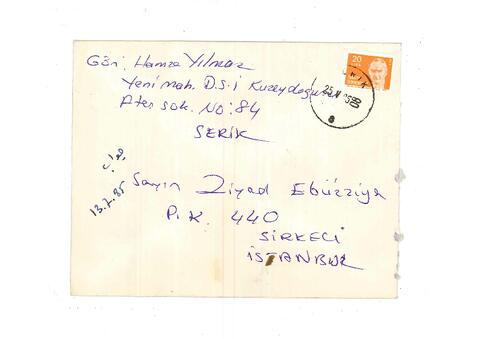 Gön: Hamza Yılmaz
Yeni mah. D.S.İ Kuzeydoğusu
Ateş sok. No: 84
SERİK
20
8
13.7.85
Sayın Ziyad Ebüzziya
P.K. 440
SİRKECİ
İSTANBUL